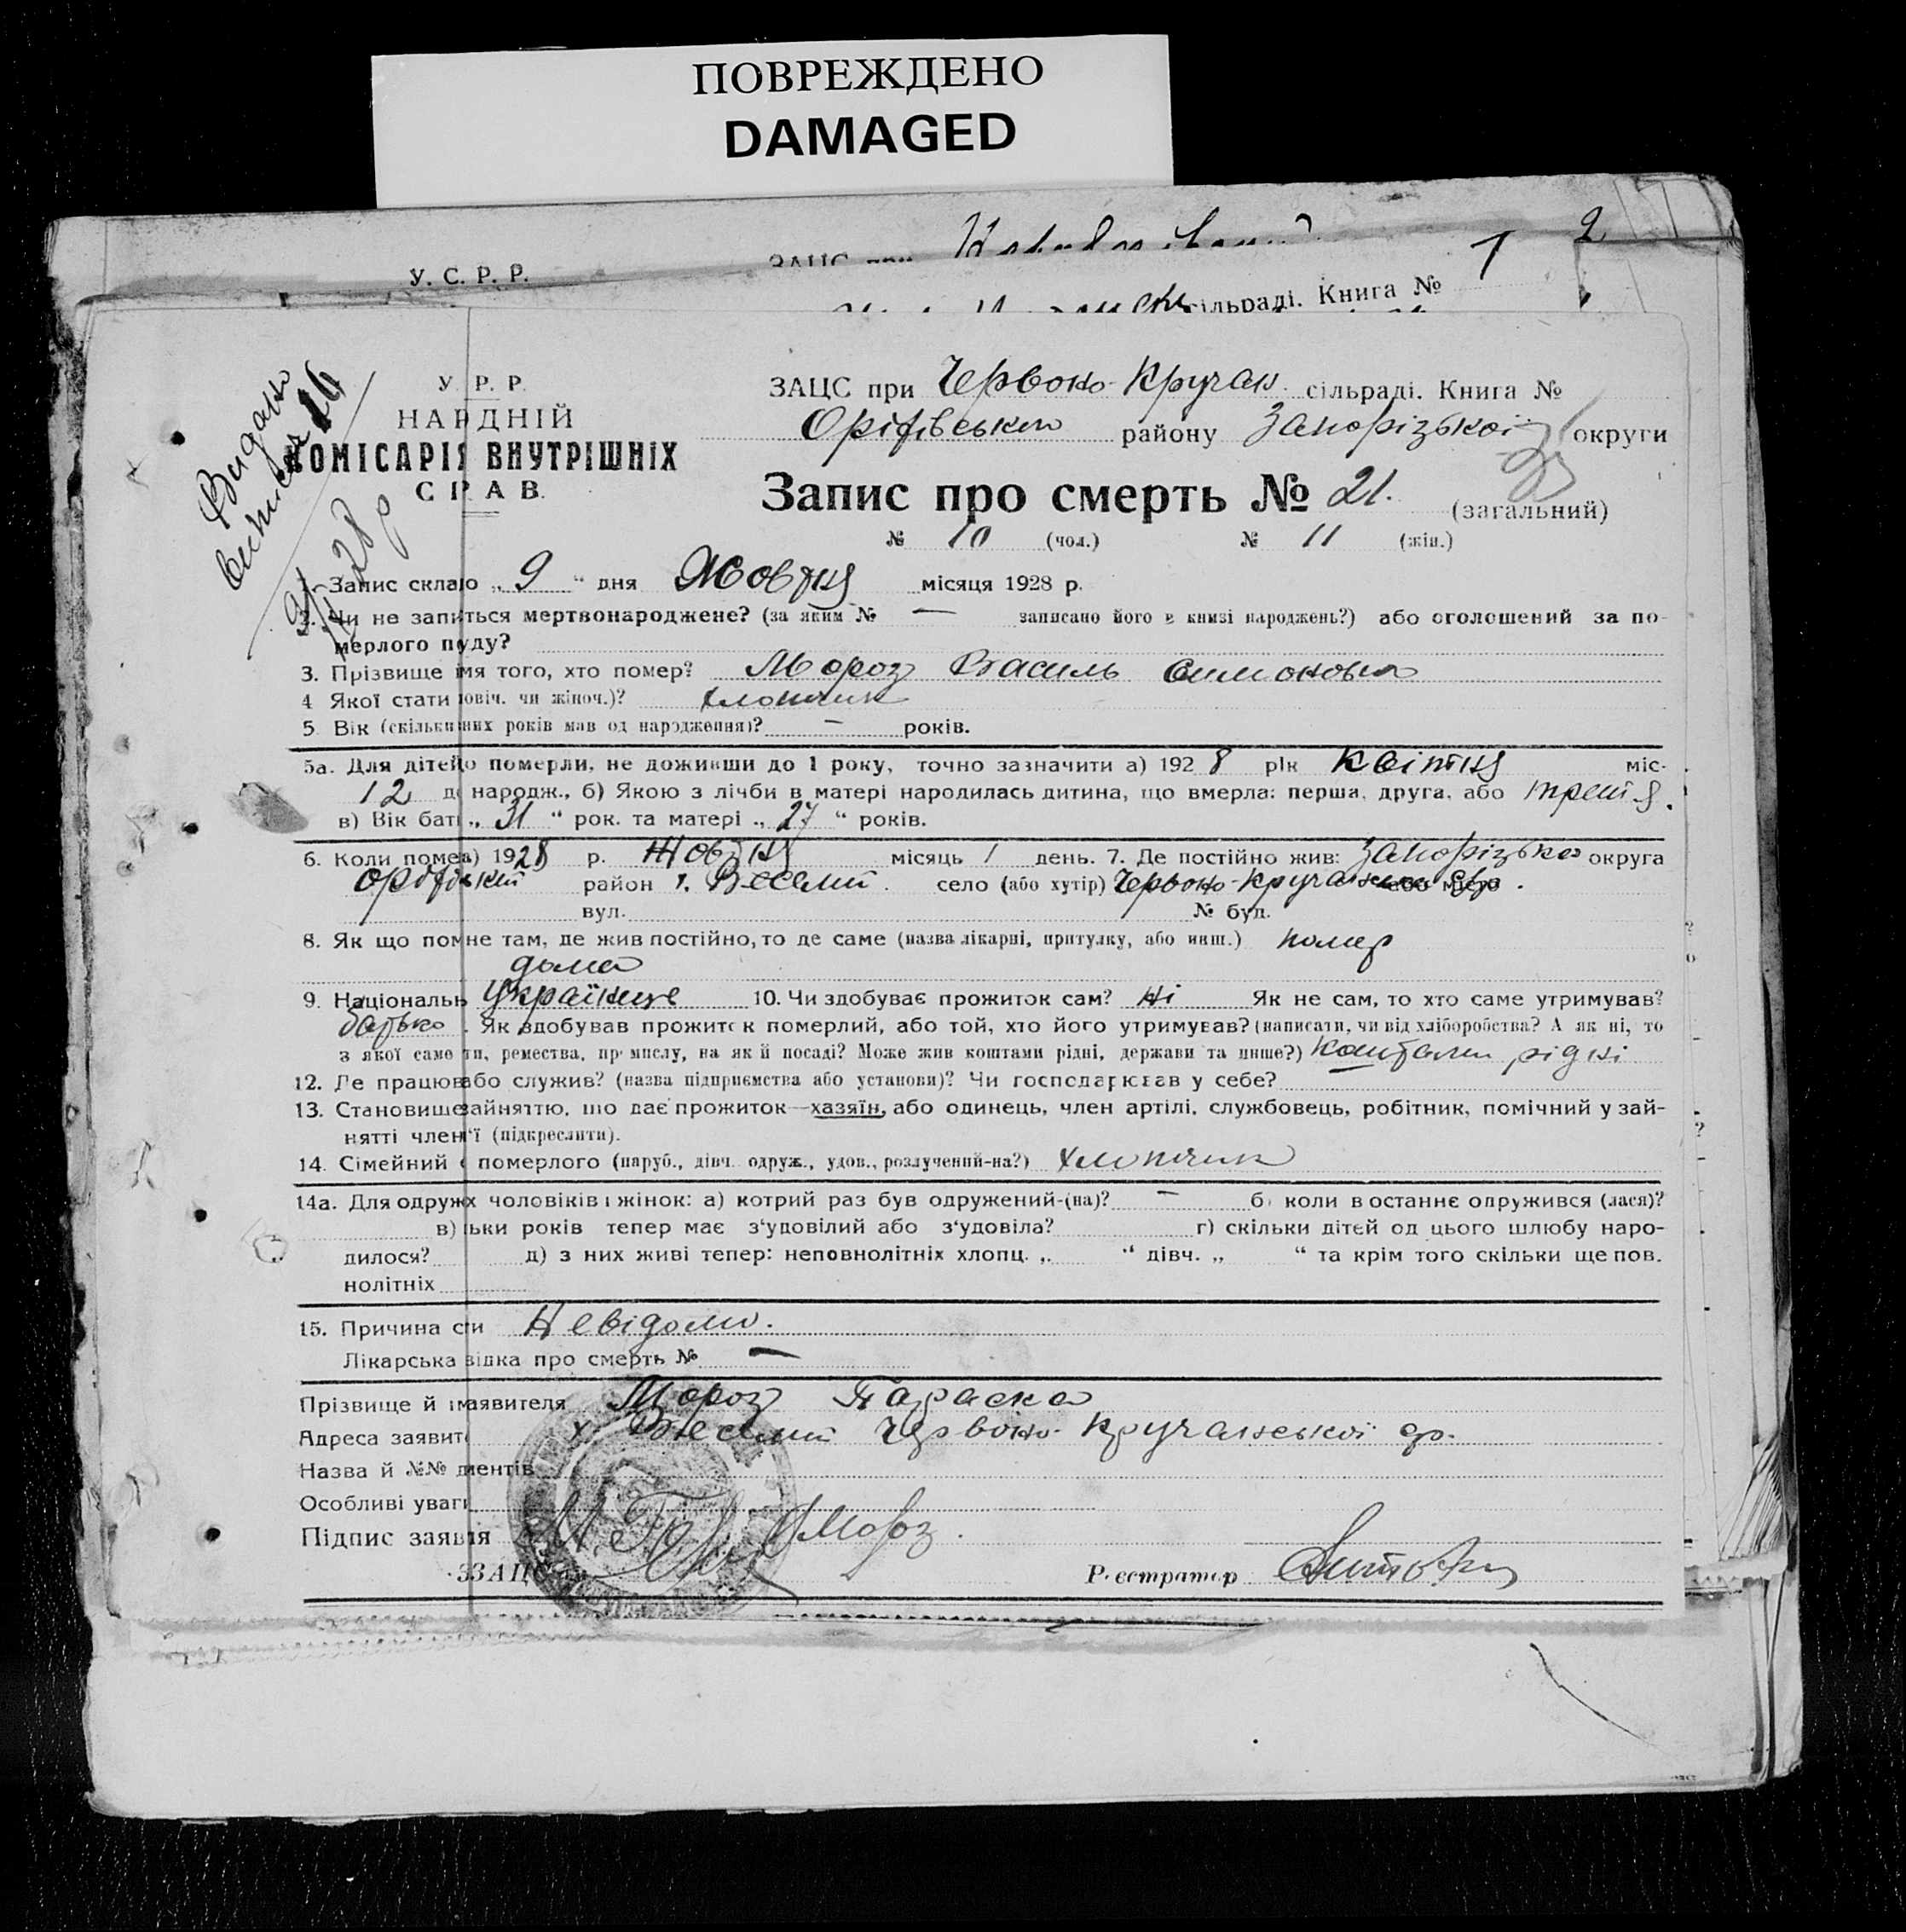 ПОВРЕЖДЕНО
DAMAGED
2
ЗАЦС при
У. С. Р. Р.
сільраді. Книга № 1
Видано
виписа 16
9/ 28 р
У Р. Р.
НАР ДНІЙ
КОМІСАРІЯ ВНУТРІШНІХ
СПРАВ.
ЗАЦС при Червоно-Кручан. сільраді. Книга №
Оріхівськ району Запорізької округи
Запис про смерть № 21. (загальний)
№ 10 (чол.) № 11 (жін.)
Запис скла о „ 9 “ дня Жовтня місяця 1928 р.
2. Чи не запи ться мертвонароджене? (за яким № — записано його в книзі народжень?) або оголошений за по-
мерлого п ду?
3. Прізвище мя того, хто помер? Мороз Василь Симонович
4 Якої стати ловіч. чи жіноч.)? хлопчик
5. Вік (скільки них років мав од народження)? — років.
5а. Для дітей о померли, не доживши до 1 року, точно зазначити а) 192 8 рік Квітня міс-
12 д народж., б) Якою з лічби в матері народилась дитина, що вмерла: перша, друга, або третя.
в) Вік бать „ 31 “ рок. та матері „ 27 “ років.
6. Коли поме а) 1928 р. Жовтня місяць 1 день. 7. Де постійно жив: Запорізька округа
Оріхівський район х. Веселий. село (або хутір) Червоно-Кручанська ср. або місто
вул. № буд.
8. Як що пом не там, де жив постійно, то де саме (назва лікарні, притулку, або инш.) помер
дома
9. Національн українець 10. Чи здобуває прожиток сам? Ні Як не сам, то хто саме утримував?
батько. Як здобував прожиток померлий, або той, хто його утримував? (написати, чи від хліборобства? А як ні, то
з якої саме ти, ремества, промислу, на якій посаді? Може жив коштами рідні, держави та инше?) Коштами рідні
12. Де працюв або служив? (назва підприємства або установи)? Чи господарював у себе?
13. Становище зайняттю, що дає прожиток—хазяїн, або одинець, член артілі, службовець, робітник, помічний у зай-
нятті член ї (підкреслити).
14. Сімейний с померлого (паруб., дівч. одруж., удов., розлучений-на?) хлопчик
14а. Для одруж х чоловіків і жінок: а) котрий раз був одружений-(на)? — б) коли востаннє одружився (лася)?
в) льки років тепер має з‘удовілий або з‘удовіла? г) скільки дітей од цього шлюбу наро-
дилося? д) з них живі тепер: неповнолітніх хлопц. „ “ дівч. „ “ та крім того скільки ще пов.
нолітніх
15. Причина с ти Невідомо.
Лікарська відка про смерть № —
Прізвище й і заявителя Мороз Параска
Адреса заявит х Веселий Червоно-Кручанської ср.
Назва й №№ ментів
Особливі уваг
Підпис заяв я Мороз.
ЗАЦС
Реєстратор